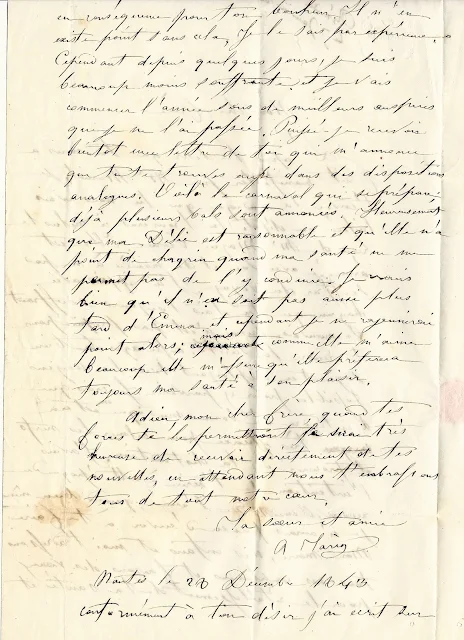 en conséquence pour ton bonheur. Il n'en
existe point sans cela, je le sais par expérience.
Cependant depuis quelques jours, je suis
beaucoup moins souffrante et je vais
commencer l'année sous de meilleurs auspices
que je ne l'ai passée. Puissé-je recevoir
bientot une lettre de toi qui m'annonce
que tu te trouves aussi dans des dispositions
analogues. Voilà le carnaval qui se prépare
déjà plusieurs bals sont annoncés. Heureusement
que ma Délie est raisonnable et qu'elle n'a
point de chagrin quand ma santé ne me
permet pas de l'y conduire. Je crains
bien qu'il n'en soit pas ainsi plus
tard d'Emma et cependant je ne rajeunirai
point alors; mais comme elle m'aime
beaucoup elle m'assure qu'elle préférera
toujours ma santé à son plaisir.
Adieu, mon cher frère, quand tes
forces te le permettront je serai très
heureuse de recevoir directement de tes
nouvelles, en attendant nous t'embrassons
tous de tout notre cœur.
Ta sœur et amie
Nantes le 28 Décembre 1843
conformément à ton désir j'ai écrit sur